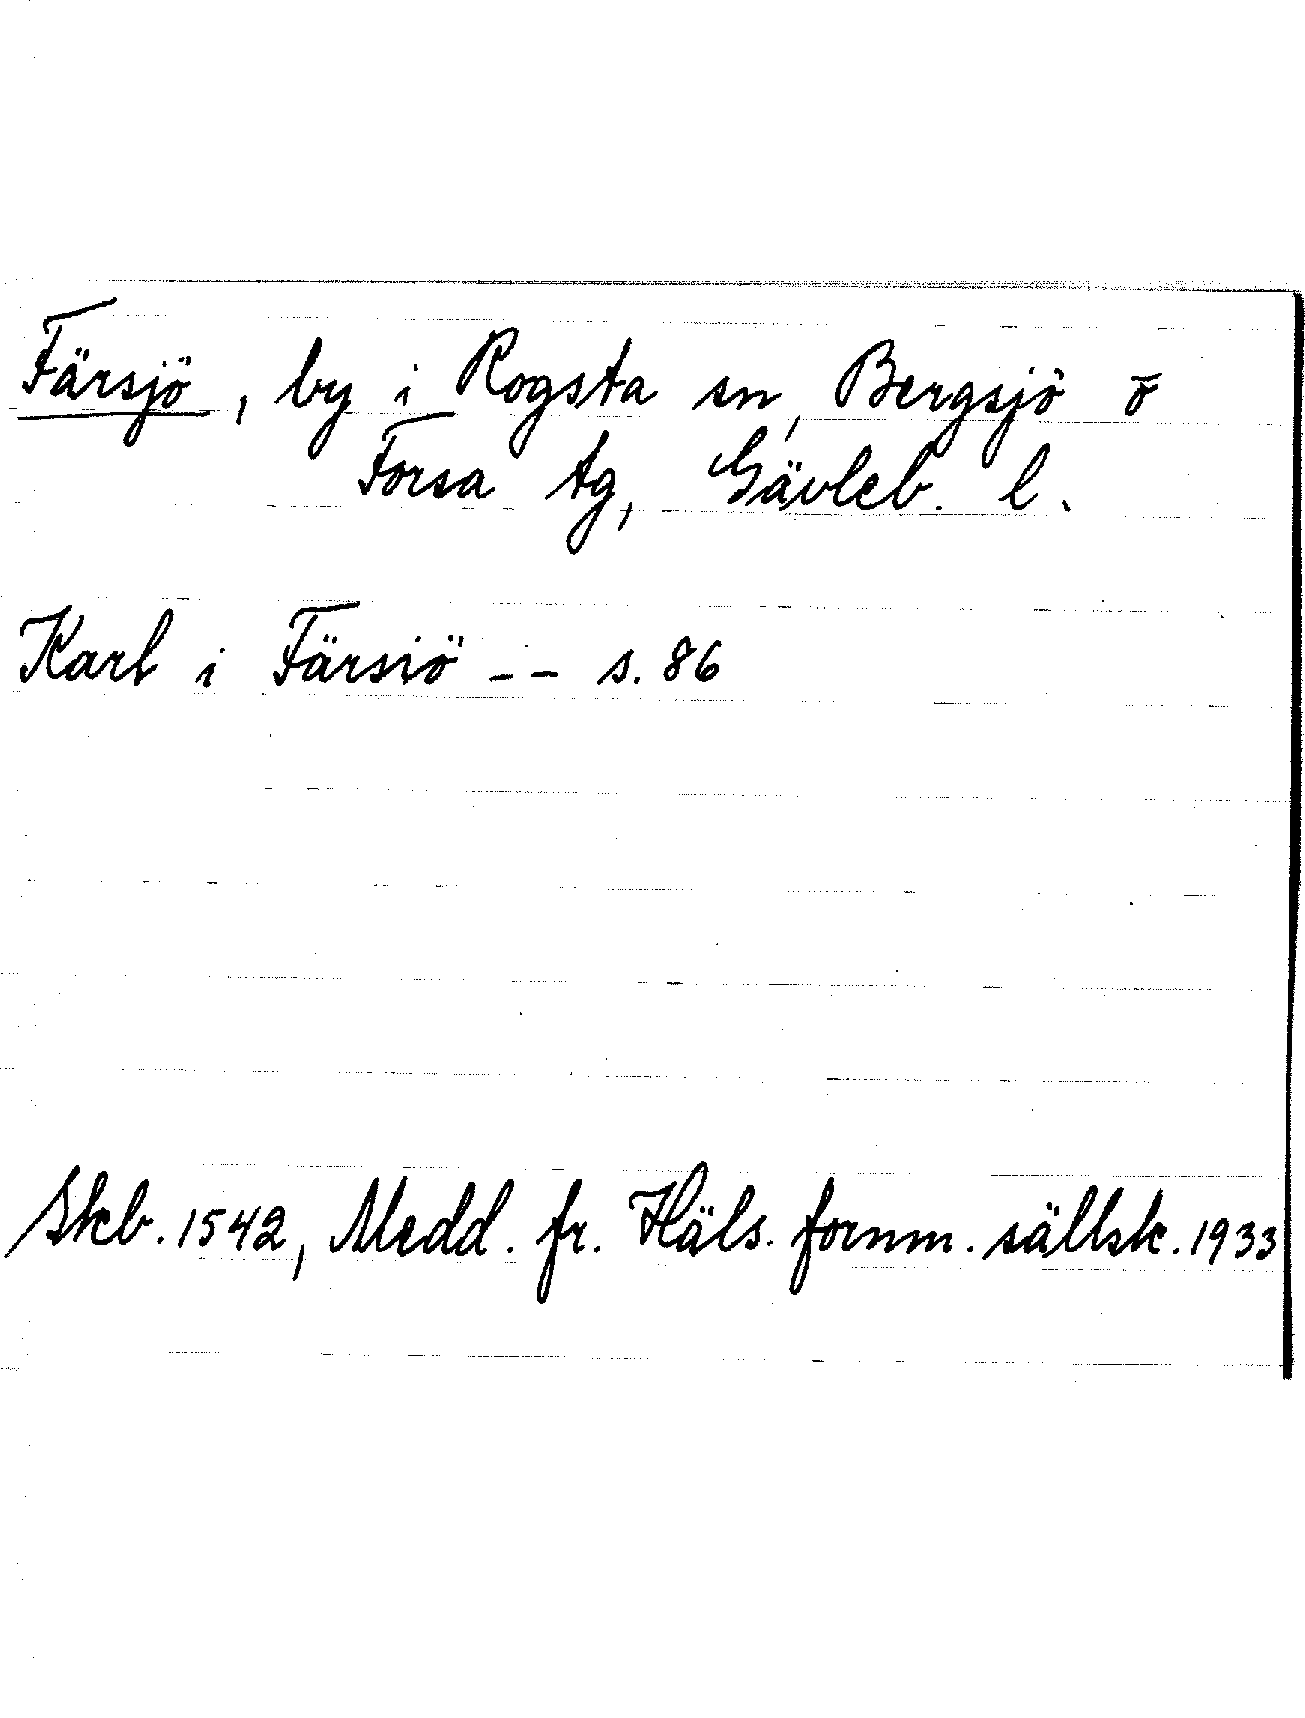 Färsjö, by i Rogsta sn, Bergsjö o
Forsa tg, Gävleb. l.
Karl i Färsiö -- s. 86
Skb. 1542, Medd. fr. Häls. fornm. sällsk. 1933